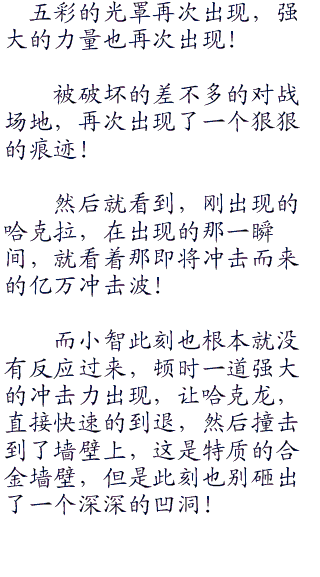 五彩的光罩再次出现，强
大的力量也再次出现！
被破坏的差不多的对战
场地，再次出现了一个狠狠
的痕迹！
然后就看到，刚出现的
哈克拉，在出现的那一瞬
间，就看着那即将冲击而来
的亿万冲击波！
而小智此刻也根本就没
有反应过来，顿时一道强大
的冲击力出现，让哈克龙，
直接快速的到退，然后撞击
到了墙壁上，这是特质的合
金墙壁，但是此刻也别砸出
了一个深深的凹洞！